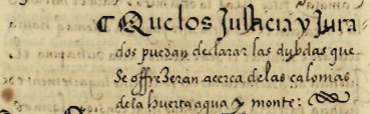 ¶ Que los Justicia y Jura-
dos puedan declarar las dubdas que
se offrezeran acerca de las calonias
dela huerta agua y monte: